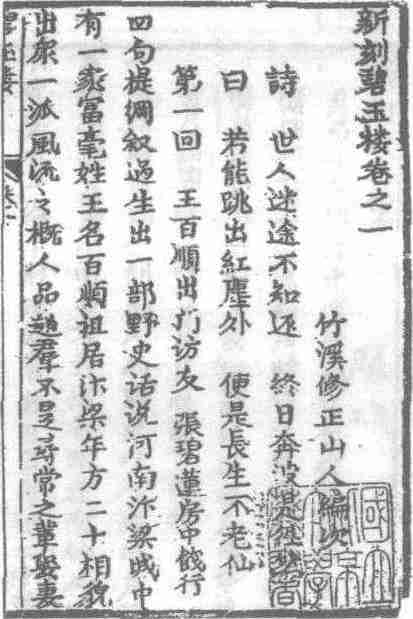 新刻碧玉楼卷之一
竹溪修正山人編次
詩 世人迷途不知返 終日奔波是
曰 若能跳出紅塵外 便是長生不老仙
第一回 王百順出门访友 張碧蓮房中餞行
四句提綱叙过生出一部野史话说河南汴梁城中
有一家富毫姓王名百順祖居汴梁年方二十相貌
出衆一派風流之概人品超羣不是尋常之輩娶妻